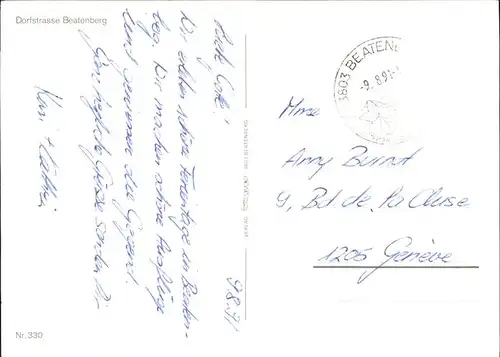 Dorfstrasse Beatenberg
9.8.91
Wir erleben schöne Ferientage in Beaten-
berg. Wir machen schöne Ausflüge
und geniessen die Gegend.
Ganz herzliche Grüsse senden Dir
3803 BEATENB
-9. 8.91-
Mme
Anny Burnot
9, Bd de la Cluse
1205 Genève
Nr. 330